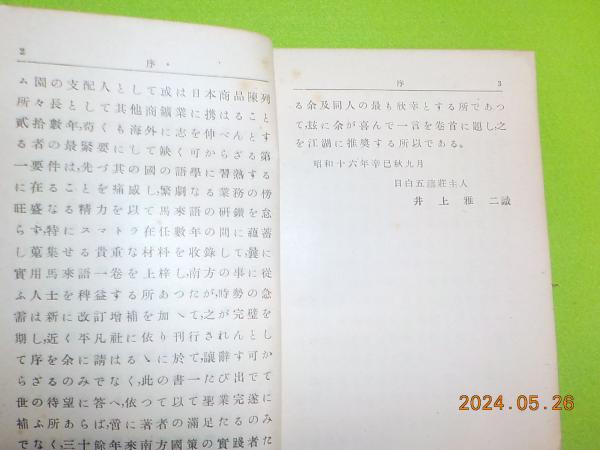 2
序
ム園の支配人として或は日本商品陳列
所々長として其他商鑛業に携はること
貳拾數年,苟くも海外に志を伸べんとす
る者の最緊要にして缺く可からざる第
一要件は,先づ其の國の語學に習熟する
に在ることを痛感し,繁劇なる業務の傍
旺盛なる精力を以て馬來語の研鑽を怠
らず,特にスマトラ在任數年の間に蘊蓄
し蒐集せる貴重な材料を收錄して,曩に
實用馬來語一卷を上梓し,南方の事に從
ふ人士を稗益する所あつたが,時勢の急
需は新に改訂增補を加へて,之が完璧を
期し,近く平凡社に依り刊行されんとし
て序を余に請はるゝに於て,讓辭す可か
らざるのみでなく,此の書一たび出でて
世の待望に答へ,依つて以て聖業完遂に
補ふ所あらば,啻に著者の滿足たるのみ
でなく,三十餘年來南方國策の實踐者た
序
3
る余及同人の最も欣幸とする所であつ
て,玆に余が喜んで一言を卷首に題し,之
を江湖に推奬する所以である。
昭和十六年辛巳秋九月
目白五 莊主人
井上雅二識
2024.05.26